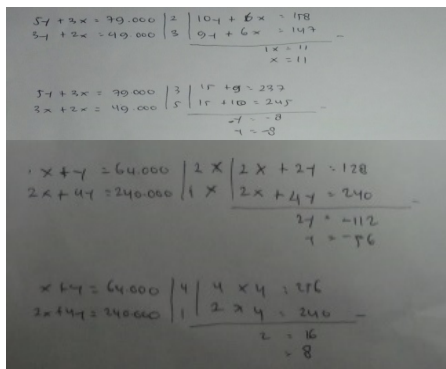 5y + 3x = 79.000 | 2 | 10y + 6x = 158
3y + 2x = 49.000 | 3 | 9y + 6x = 147 -
1x = 11
x = 11
5y + 3x = 79.000 | 3 | 15 + 9 = 237
3x + 2x = 49.000 | 5 | 15 + 10 = 245 -
-y = -8
y = -8
1x + y = 64.000 | 2 x | 2x + 2y = 128
2x + 4y = 240.000 | 1 x | 2x + 4y = 240 -
2y = -112
y = -56
x + y = 64.000 | 4 | 4 x 4 = 256
2x + 4y = 240.000 | 1 | 2 x y = 240 -
2 = 16
= 8